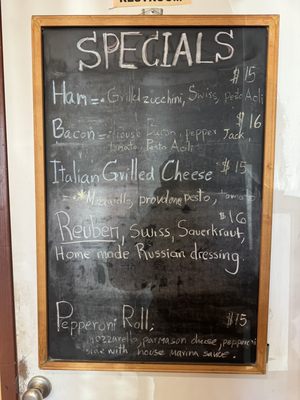 RESTROOM
SPECIALS
$15
Ham = Grilled zucchini, Swiss, pesto Aoli
$16
Bacon = House Bacon, pepper Jack,
tomato, Pesto Aoli
Italian Grilled Cheese $15
= Mozzarella, provolone, pesto, tomato
$16
Reuben, Swiss, Sauerkraut,
Home made Russian dressing.
Pepperoni Roll, $15
mozzarella, parmason cheese, pepperoni
side with house marina sauce.